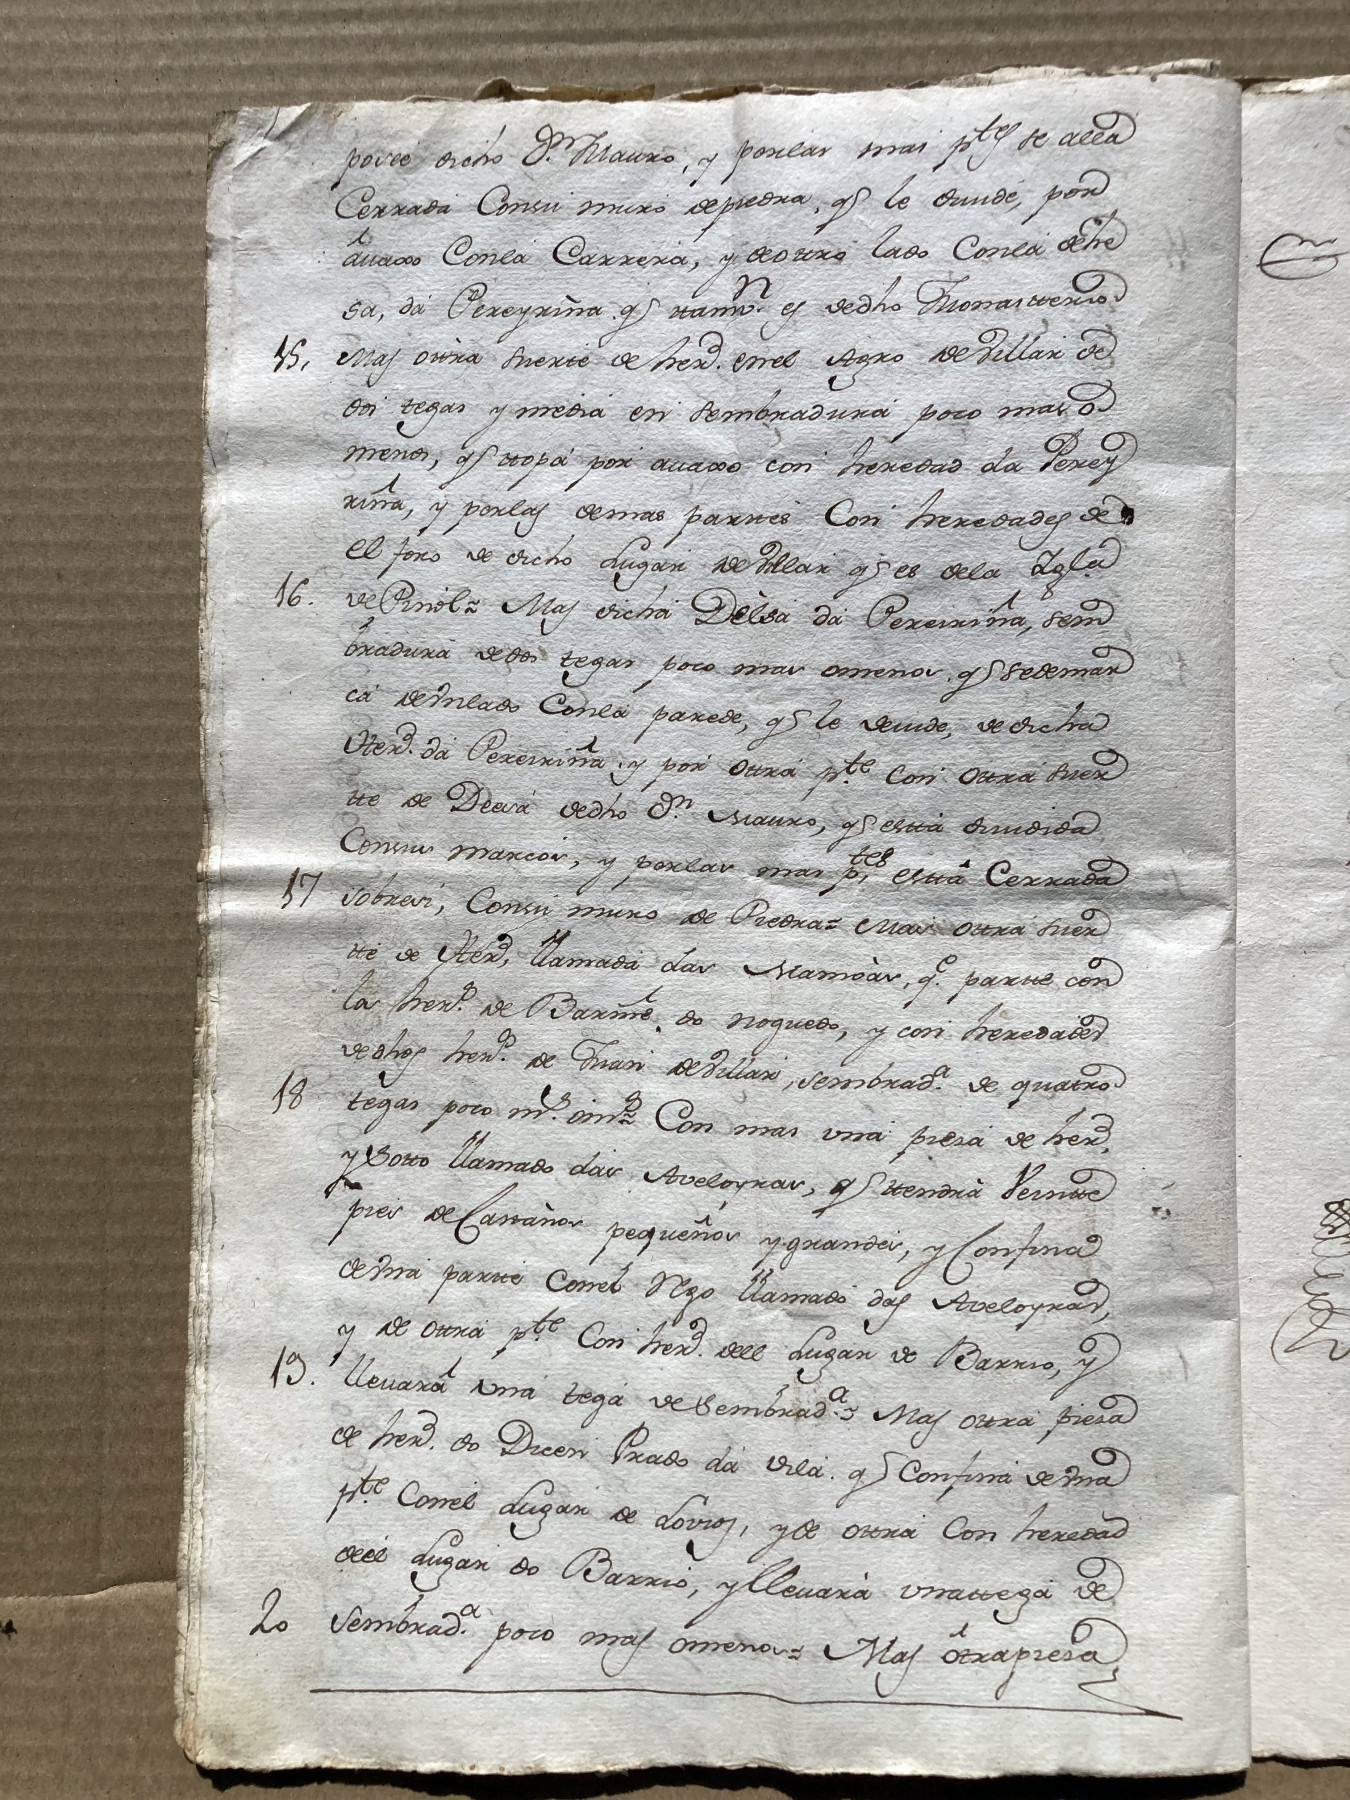 dicho Dn. Mauro, y porlas mas ptes se alla
Cerrada Consu muro depiedra, q le diuide, por
auaxo Conla Carrera, y deottro lado Conla dehe
sa, dá Pereyriña q ttamn. es dedho Monastterio
15. Mas ottra suerte de herd. enel Agro deVillar de
dos tegas y mediá en Sembradura poco mas o
menos, q ttopá por auaxo con heredad da Perey
riña, y porlas demas parttes Con heredades de
el foro de dicho Lugar deVillar q es dela Igla
16. de Piñol= Mas dicha Deesa dá Pereiriña, sem
bradura dedos tegas poco mas omenos q sedemar
cá deVnlado Conla parede, q le deuide, de dicha
Herd. dá Pereiriña y por ottrá pte con ottrá suer
tte de Deesá dedho Dn. Mauro, q estta diuidida
Consus marcos, y porlas mas ptes esttá Cerrada
17 sobresi, Consu muro de Piedra= Mas ottrá suer
tte de Herd. llamada das Mamoas, q.e partte con
los herds. de Barme. do Noguedo, y con heredades
dedhos herds. de Juan deVillar, sembrada. de quatro
18 tegas poco ms. oms.= Con mas vná piesa de herd.
y Sotto llamado das Aveloyras, q ttendrá Veintte
pies deCastaños pequeños y grandes, y Confina
deVná partte Conel llamado das Aveloyras,
y de ottrá pte Con herd. dell Lugar de Barrio, y
19. lleuará vná tegá deSembrada.= Mas ottrá piesa
de herd. do Dicen Prado dá Vila. q Confiná deVna
pte Conel Lugar de Lovios, yde ottrá Con heredad
deel Lugar do Barrio, y lleuará vnattegá de
20 sembrada. poco mas omenos= Mas otrapiesa